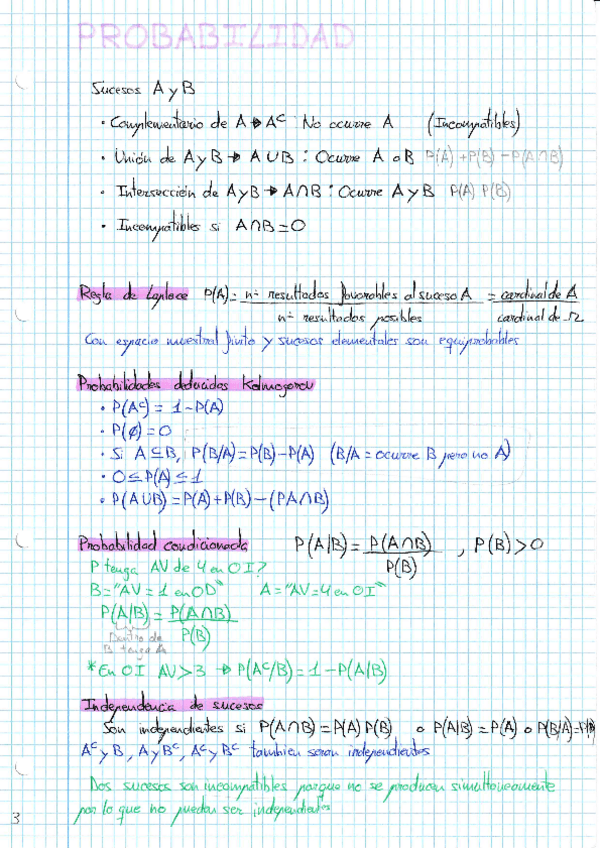 PROBABILIDAD
Sucesos A y B
· Complementario de A → Aᶜ No ocurre A (Incompatibles)
· Unión de A y B → A∪B : Ocurre A o B P(A)+P(B)-P(A∩B)
· Intersección de A y B → A∩B : Ocurre A y B P(A) P(B)
· Incompatibles si A∩B=0
Regla de Laplace P(A)= nº resultados favorables al suceso A / nº resultados posibles = cardinal de A / cardinal de Ω
Con espacio muestral finito y sucesos elementales son equiprobables
Probabilidades deducidas Kolmogorov
· P(Aᶜ) = 1-P(A)
· P(∅)=0
· Si A⊆B, P(B/A)=P(B)-P(A) (B/A = ocurre B pero no A)
· 0≤P(A)≤1
· P(A∪B)=P(A)+P(B)-(PA∩B)
Probabilidad condicionada P(A|B)= P(A∩B) / P(B) , P(B)>0
P tenga AV de 4 en OI?
B="AV=1 en OD" A="AV=4 en OI"
P(A|B)= P(A∩B) / P(B)
Dentro de
B tenga A
*En OI AV>3 → P(Aᶜ/B)=1-P(A|B)
Independencia de sucesos
Son independientes si P(A∩B)=P(A) P(B) o P(A|B)=P(A) o P(B/A)=P(B)
Aᶜ y B, A y Bᶜ, Aᶜ y Bᶜ tambien seran independientes
Dos sucesos son incompatibles porque no se producen simultaneamente
por lo que no puedan ser independientes
3